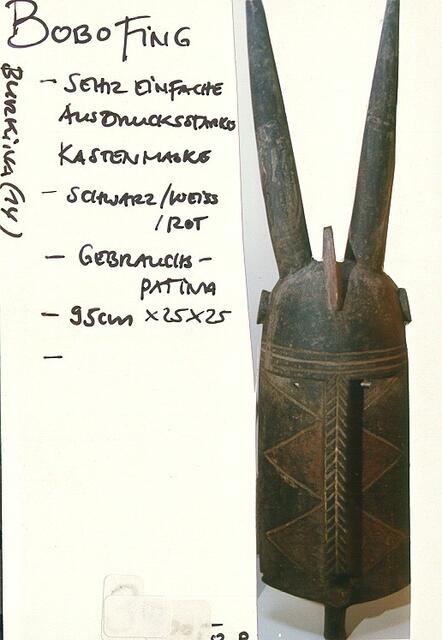 BOBO FING
- SEHR EINFACHE
AUSDRUCKSSTARKE
KASTENMASKE
- SCHWARZ/WEISS
/ROT
- GEBRAUCHS-
PATINA
- 95cm x25x25
-